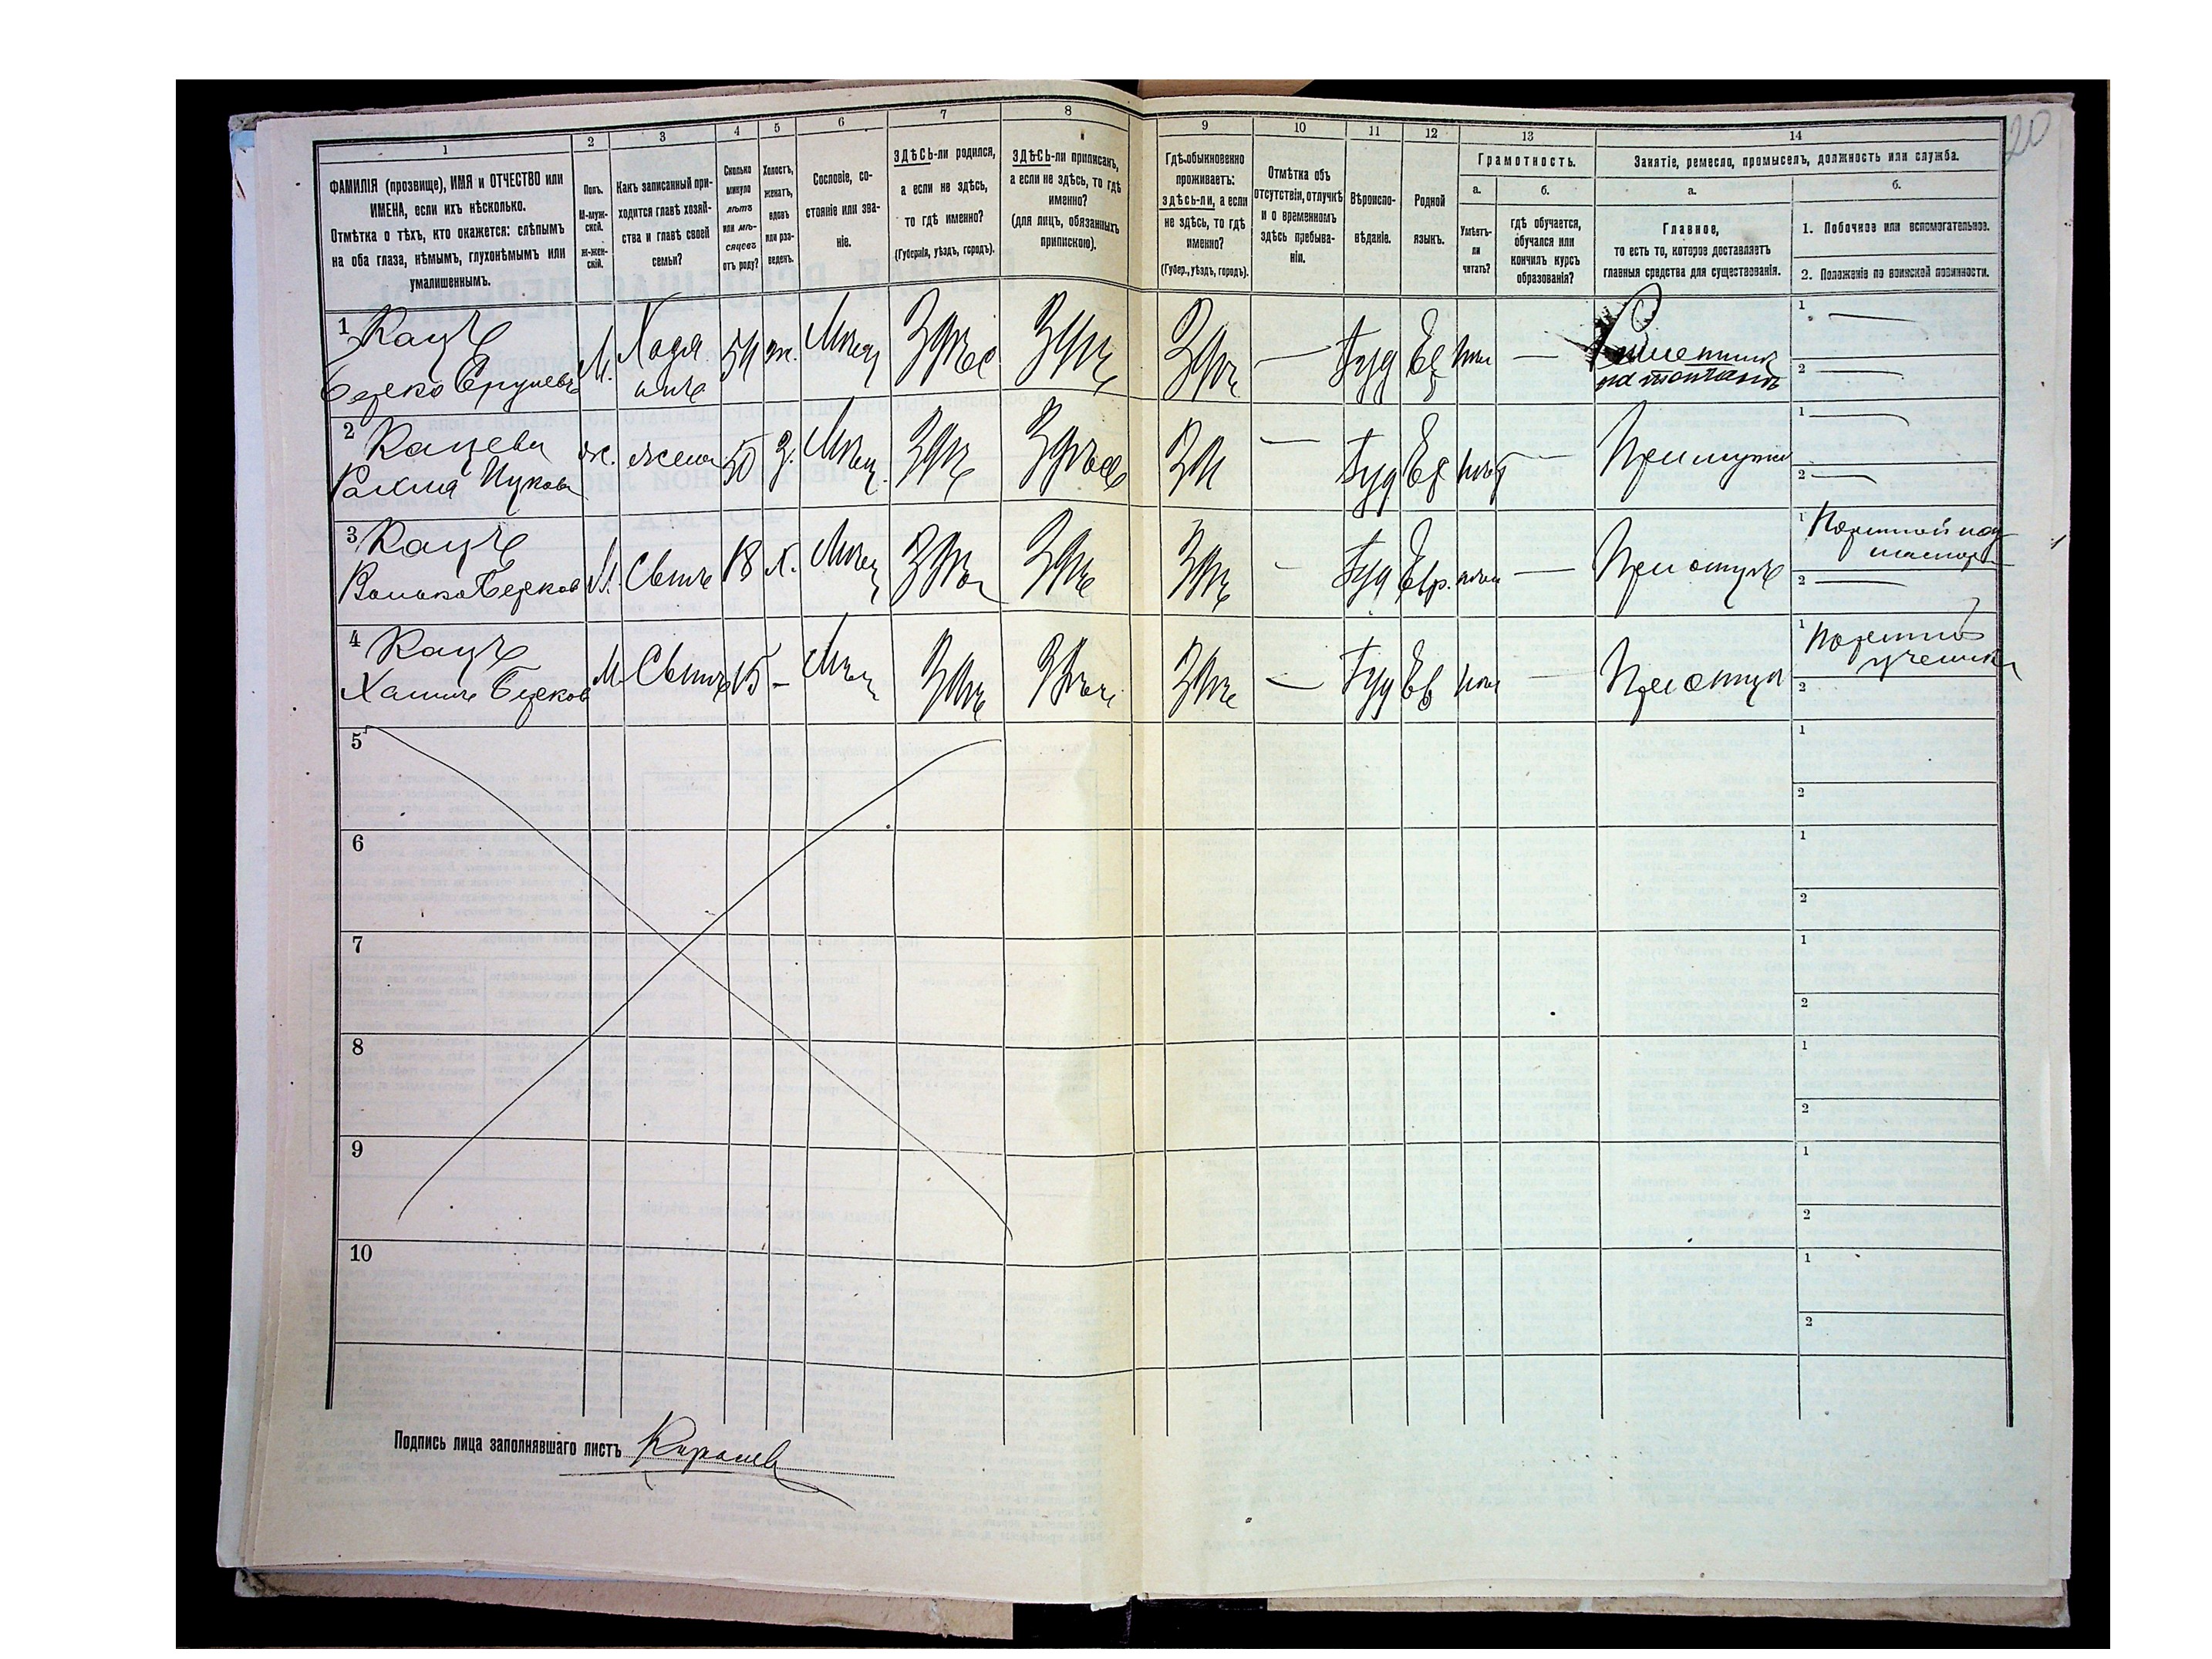 20
1
ФАМИЛІЯ (прозвище), ИМЯ и ОТЧЕСТВО или
ИМЕНА, если ихъ нѣсколько.
Отмѣтка о тѣхъ, кто окажется: слѣпымъ
на оба глаза, нѣмымъ, глухонѣмымъ или
умалишеннымъ.
2
Полъ.
М-муж-
ской.
ж-жен-
скій.
3
Какъ записанный при-
ходится главѣ хозяй-
ства и главѣ своей
семьи?
4
Сколько
минуло
лѣтъ
или мѣ-
сяцевъ
отъ роду?
5
Холостъ,
женатъ,
вдовъ
или раз-
веденъ.
6
Сословіе, со-
стояніе или зва-
ніе.
7
ЗДѢСЬ-ли родился,
а если не здѣсь,
то гдѣ именно?
(Губернія, уѣздъ, городъ).
8
ЗДѢСЬ-ли приписанъ,
а если не здѣсь, то гдѣ
именно?
(для лицъ, обязанныхъ
припискою).
9
Гдѣ обыкновенно
проживаетъ:
здѣсь-ли, а если
не здѣсь, то гдѣ
именно?
(Губер., уѣздъ, городъ).
10
Отмѣтка объ
отсутствіи, отлучкѣ
и о временномъ
здѣсь пребыва-
ніи.
11
Вѣроиспо-
вѣданіе.
12
Родной
языкъ.
13
Грамотность.
а.
Умѣетъ-
ли
читать?
б.
гдѣ обучается,
обучался или
кончилъ курсъ
образованія?
14
Занятіе, ремесло, промыселъ, должность или служба.
а.
Главное,
то есть то, которое доставляетъ
главныя средства для существованія.
б.
1. Побочное или вспомогательное.
2. Положеніе по воинской повинности.
1 Кацъ
Берко
М.
Хозя
инъ
54
ж.
Мѣщ
Здѣс
Здѣ
Здѣ
—
Іуд
Ев
—
1 —
2 —
2 Кацева
ж.
жена
50
З.
Мѣщ.
Здѣ
Здѣсь
Зд
—
Іуд
Ев
—
При мужѣ
1 —
2 —
3 Кацъ
Берков
М.
Сынъ
18
х.
Мѣщ
Здѣ
Здѣ
Здѣ
-
Іуд
Евр.
—
При отцѣ
1 Портной
2 —
4 Кацъ
Берков
М
Сынъ
15
-
Мѣщ
Здѣ
Здѣ
Здѣ
—
Іуд
Ев
—
При отцѣ
1
ученик
2
5
1
2
6
1
2
7
1
2
8
1
2
9
1
2
10
1
2
Подпись лица заполнявшаго листъ